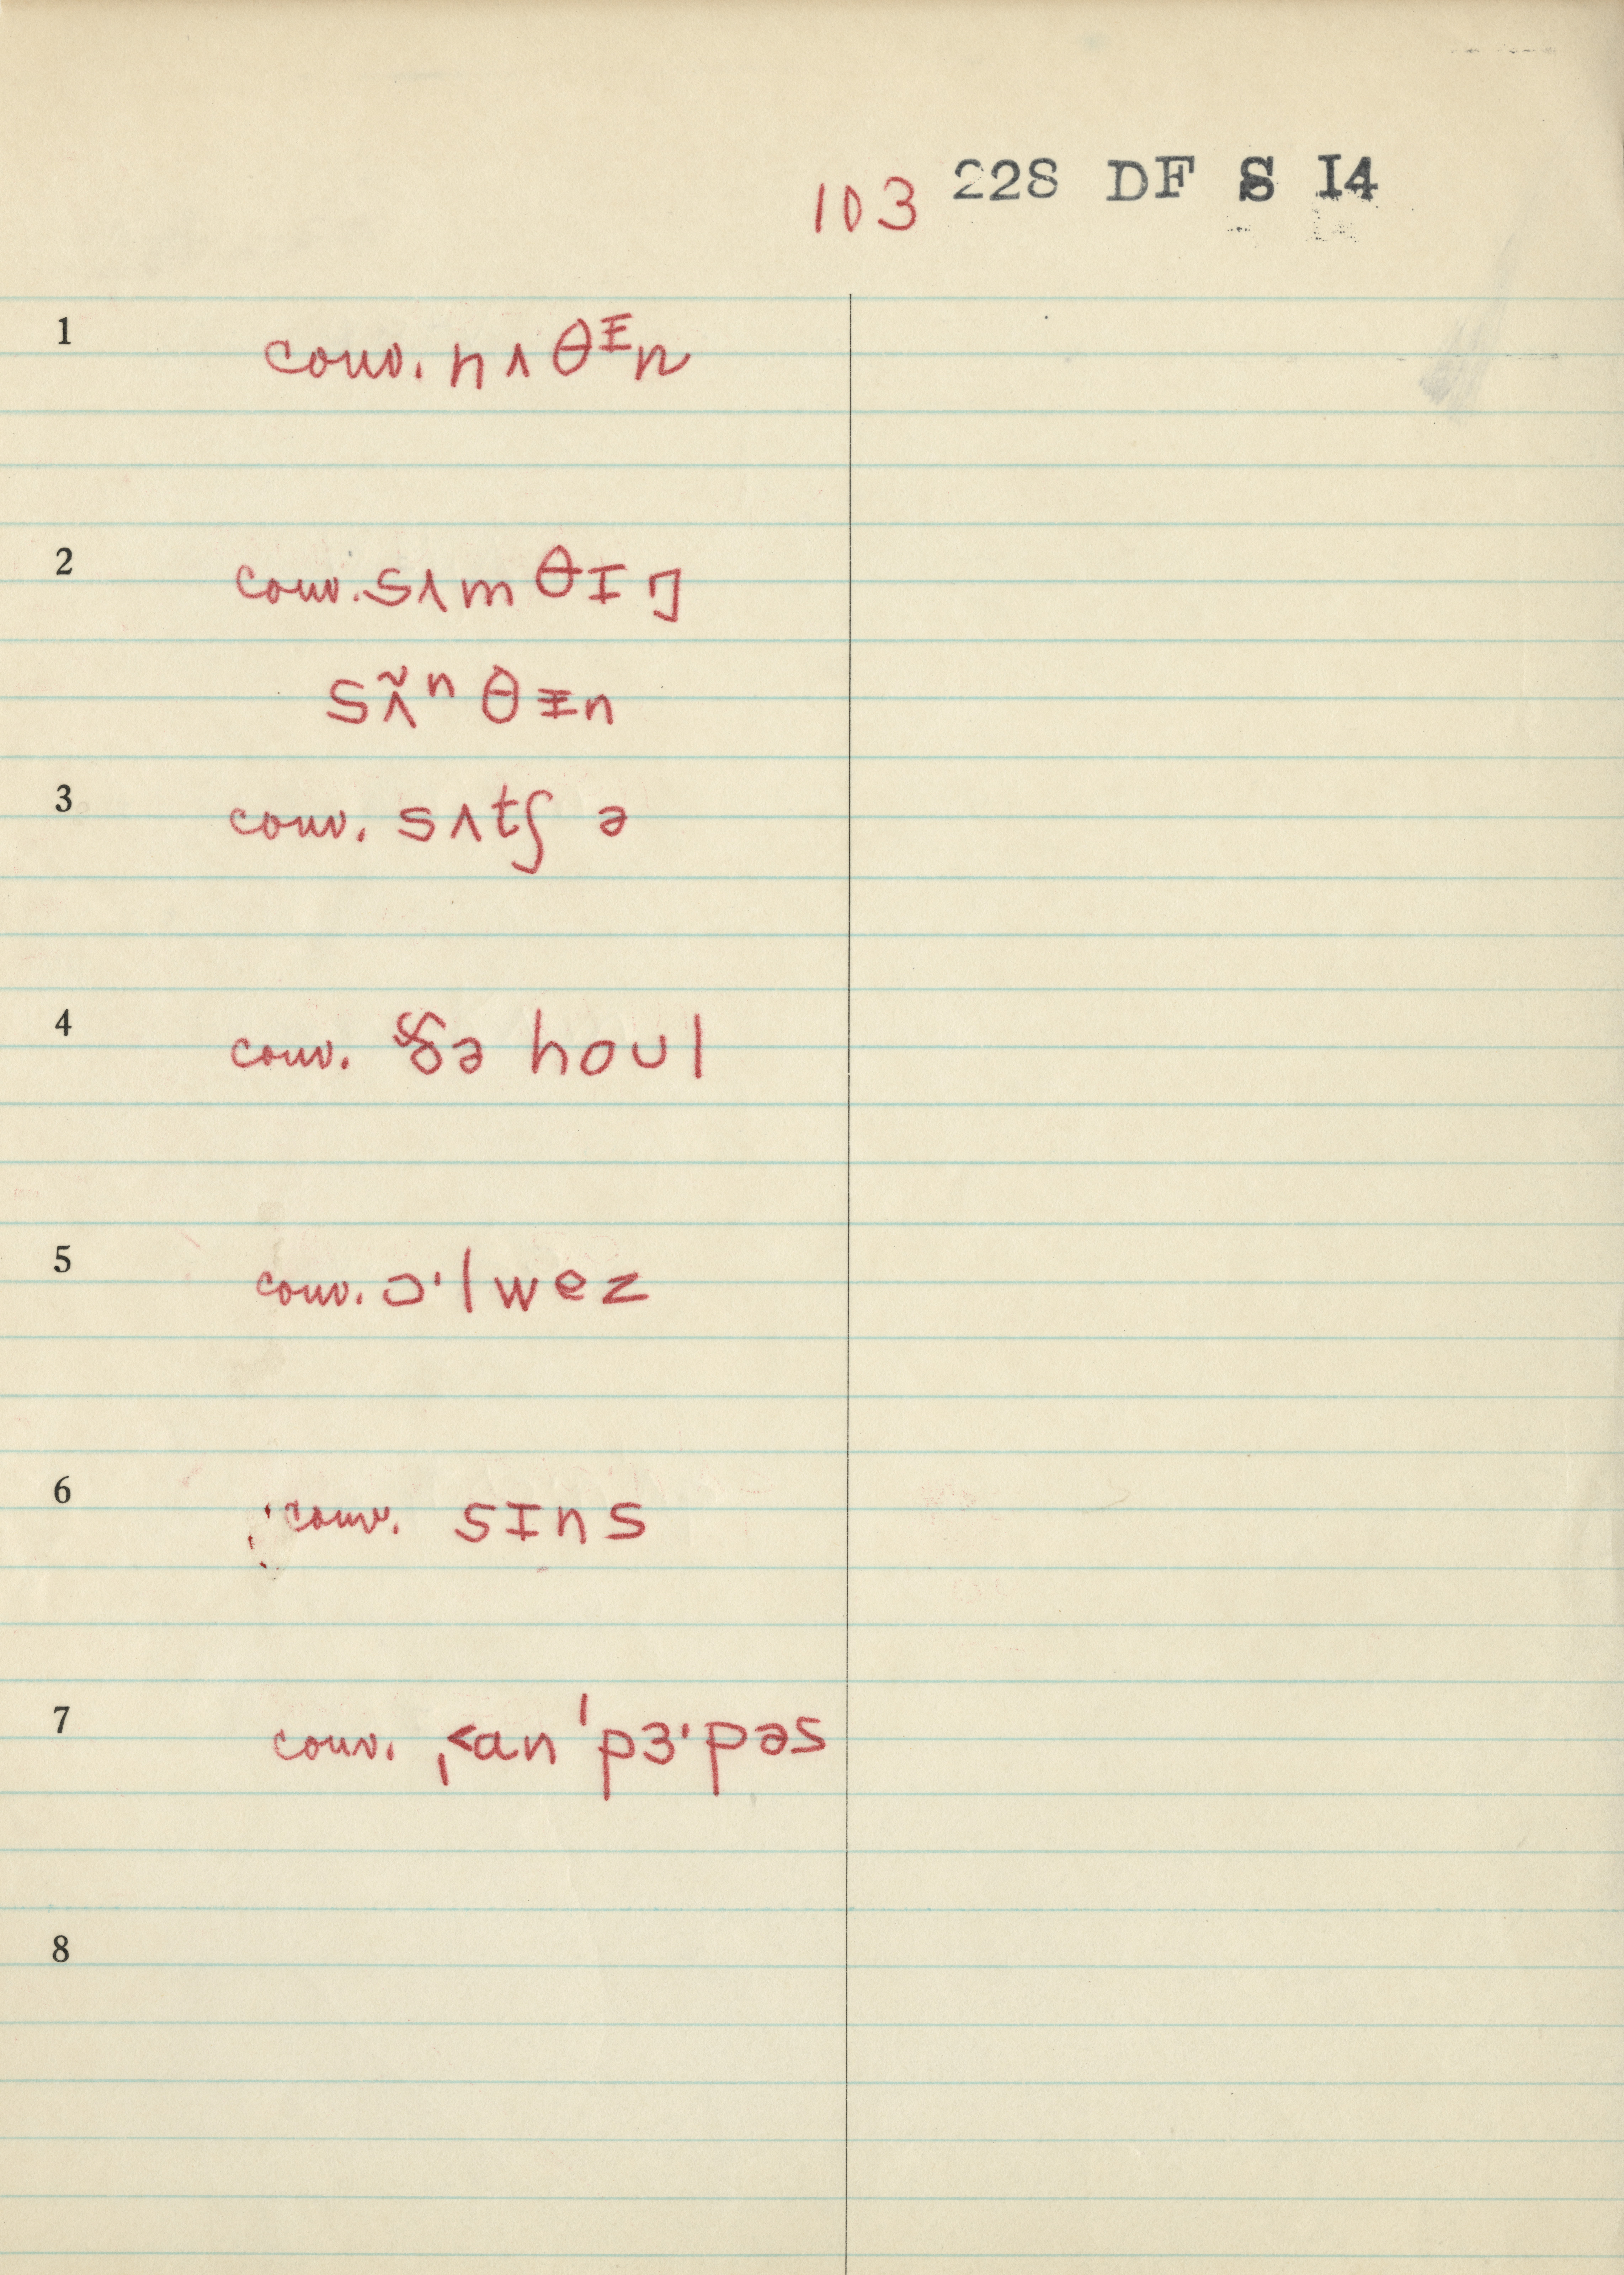 103 228 DF S I4
1 conv. nʌθᵻn
2 conv. sʌmθɪŋ
sʌ̃ⁿθᵻn
3 conv. sʌtʃ ə
4 conv. ðə hoʊl
5 conv. ɔ·lwez
6 conv. sɪns
7 conv. ˌ<ɑn ˈpɜ·pəs
8